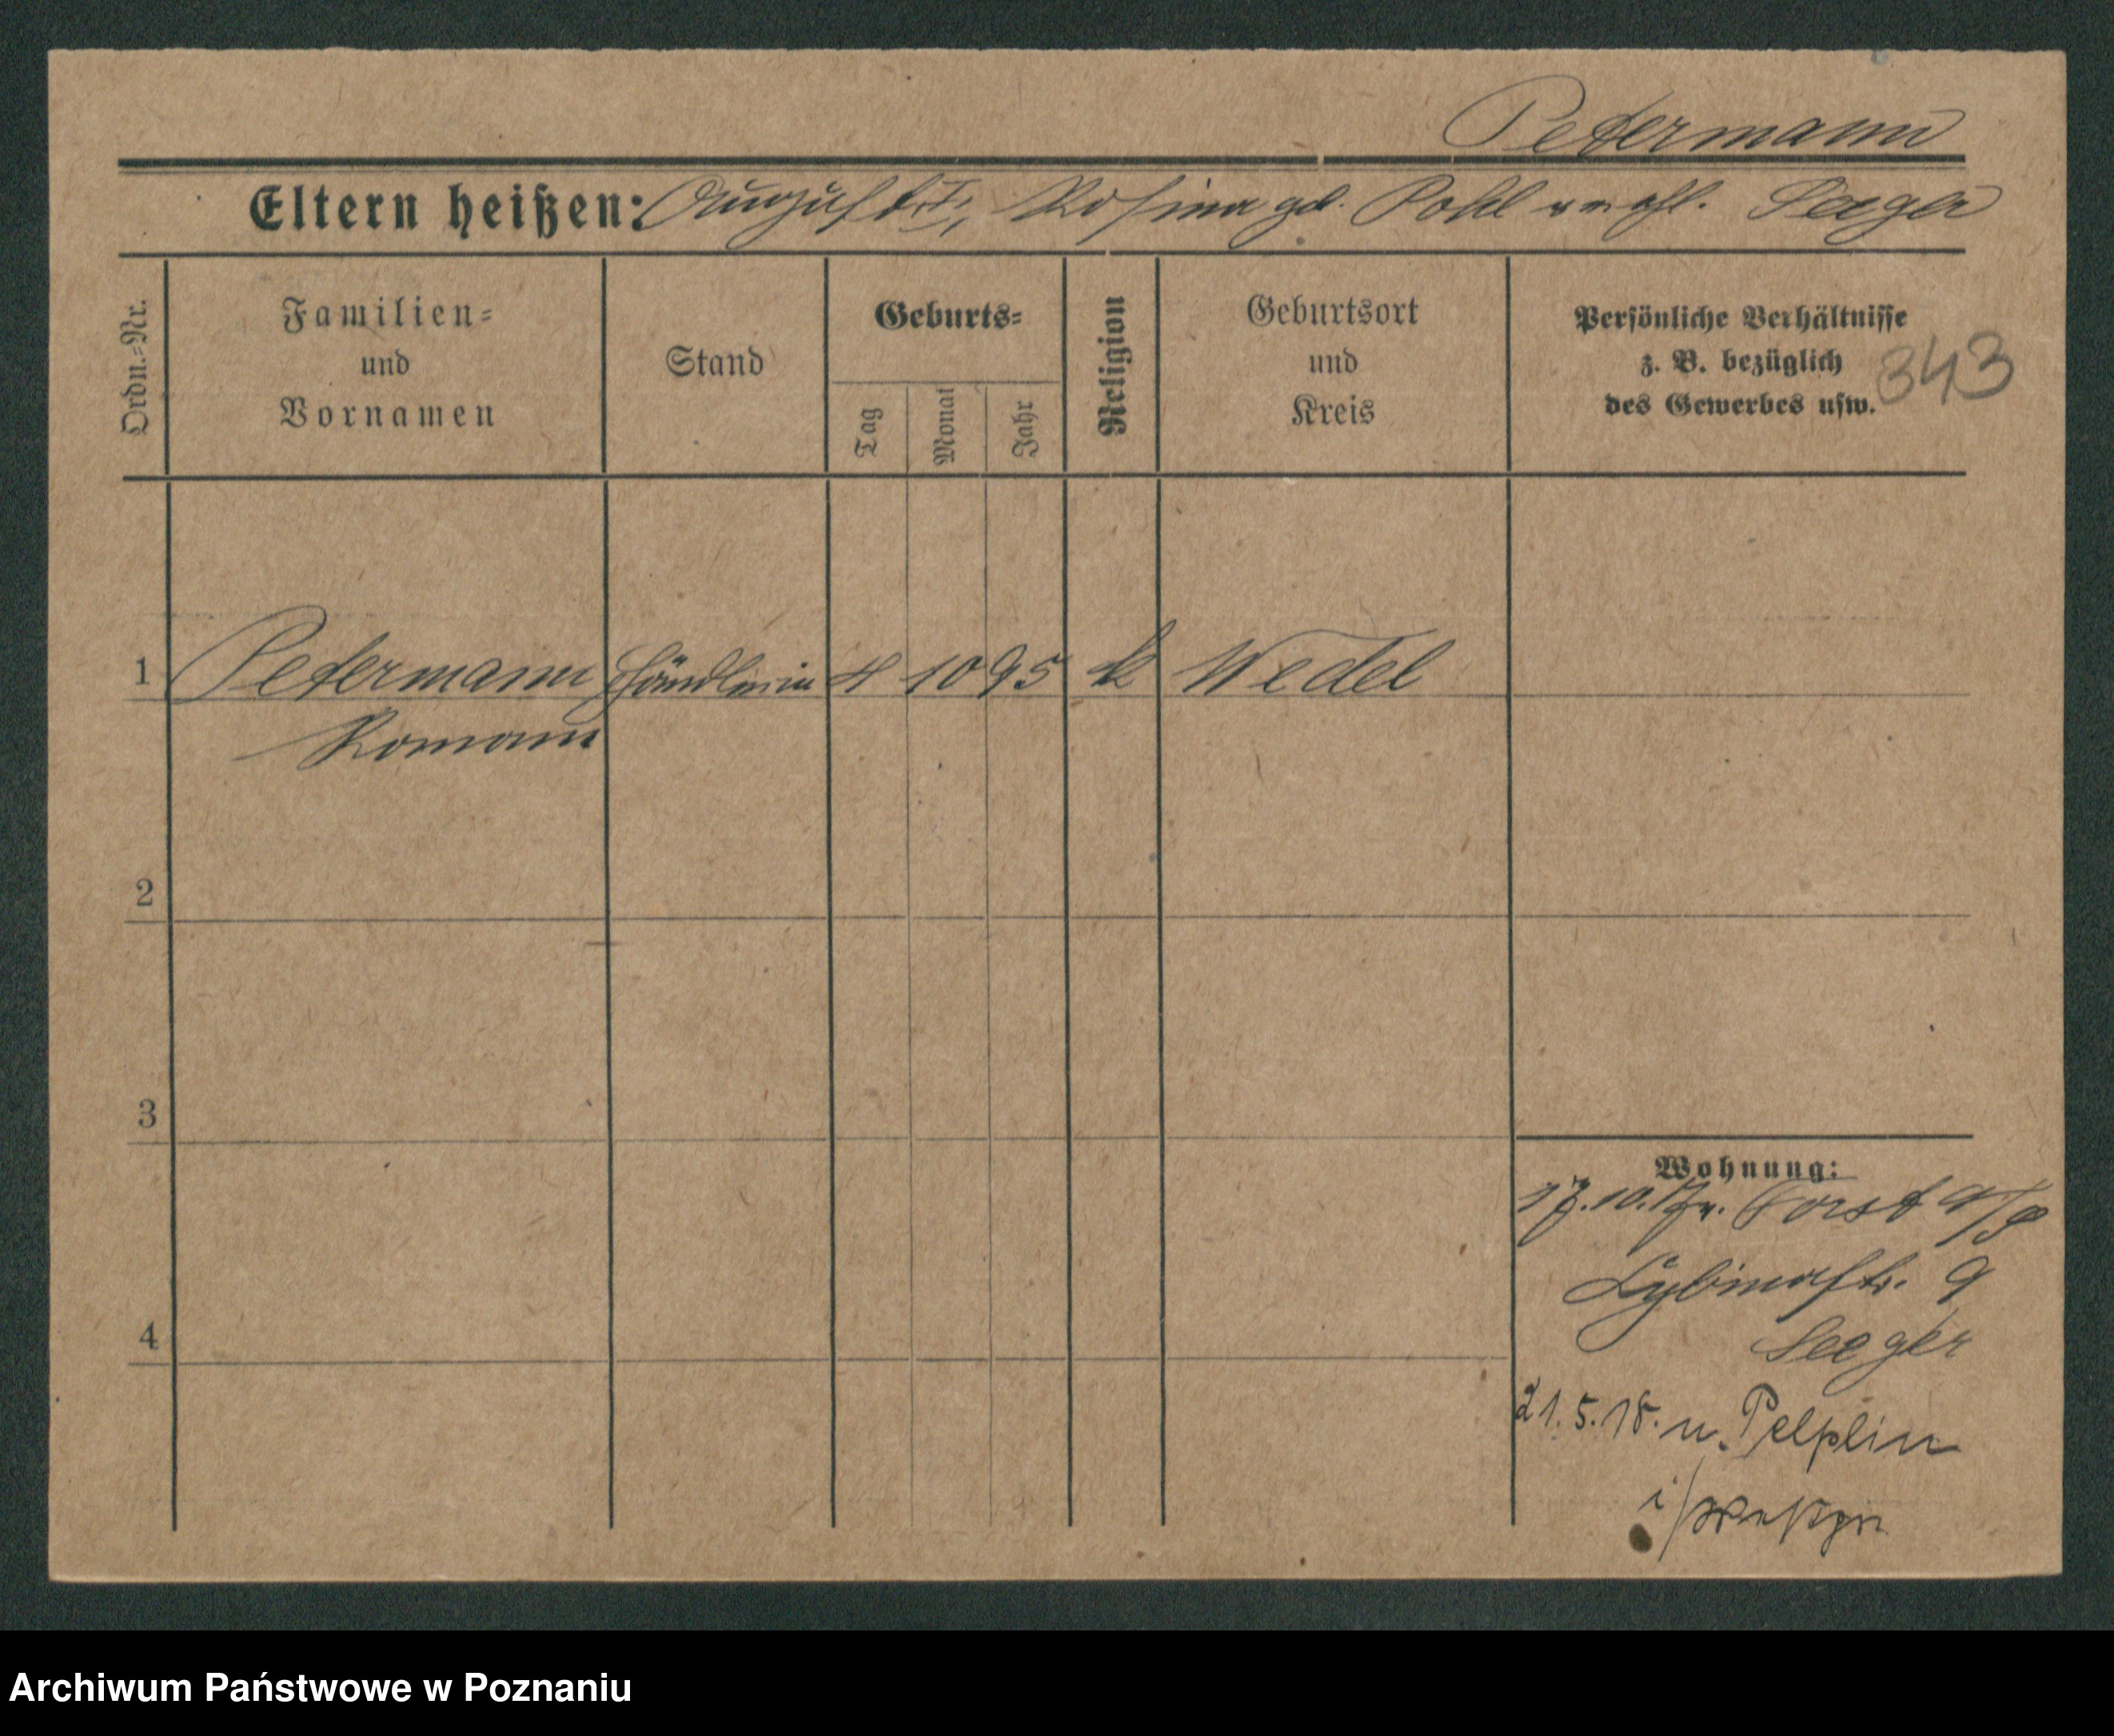 Petermann
Eltern heißen: August †, Rosina geb. Pohl verehl. Seeger
Ordn.=Nr.
Familien=
und
Vornamen
Stand
Geburts=
Tag
Monat
Jahr
Religion
Geburtsort
und
Kreis
Persönliche Verhältnisse
z. B. bezüglich
des Gewerbes usw.
343
1 Petermann 4 10 95 k Wedel
Roman
2
3
4
Wohnung:
17.10.17 v. Forst
9
Seeger
21.5.18. n. Pelplin
i/Westpr
Archiwum Państwowe w Poznaniu